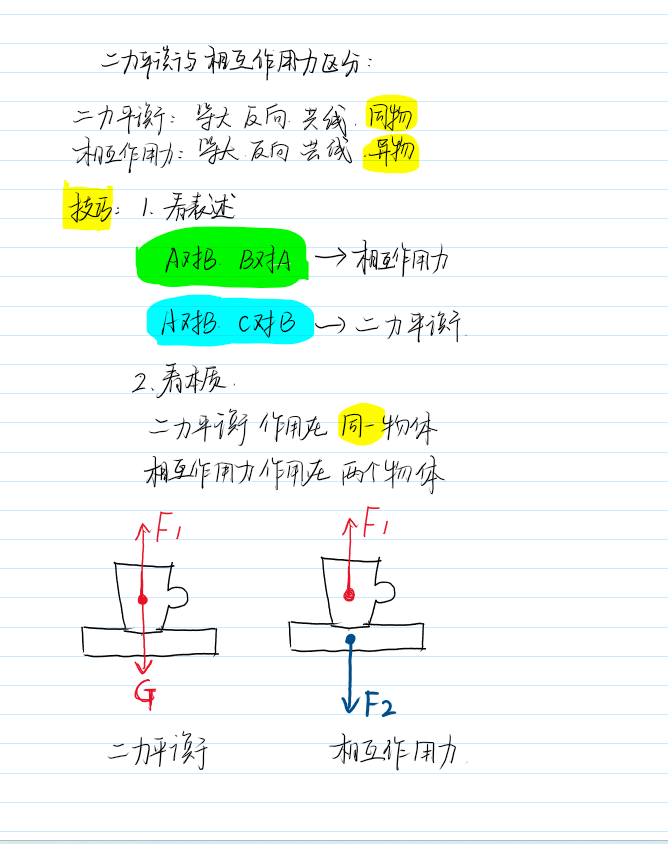 二力平衡与相互作用力区分:
二力平衡: 等大 反向 共线. 同物
相互作用力: 等大. 反向 共线. 异物
技巧: 1. 看表述
A对B. B对A → 相互作用力
A对B. C对B → 二力平衡.
2. 看本质.
二力平衡 作用在 同一物体
相互作用力作用在 两个物体
F1 F1
G F2
二力平衡 相互作用力